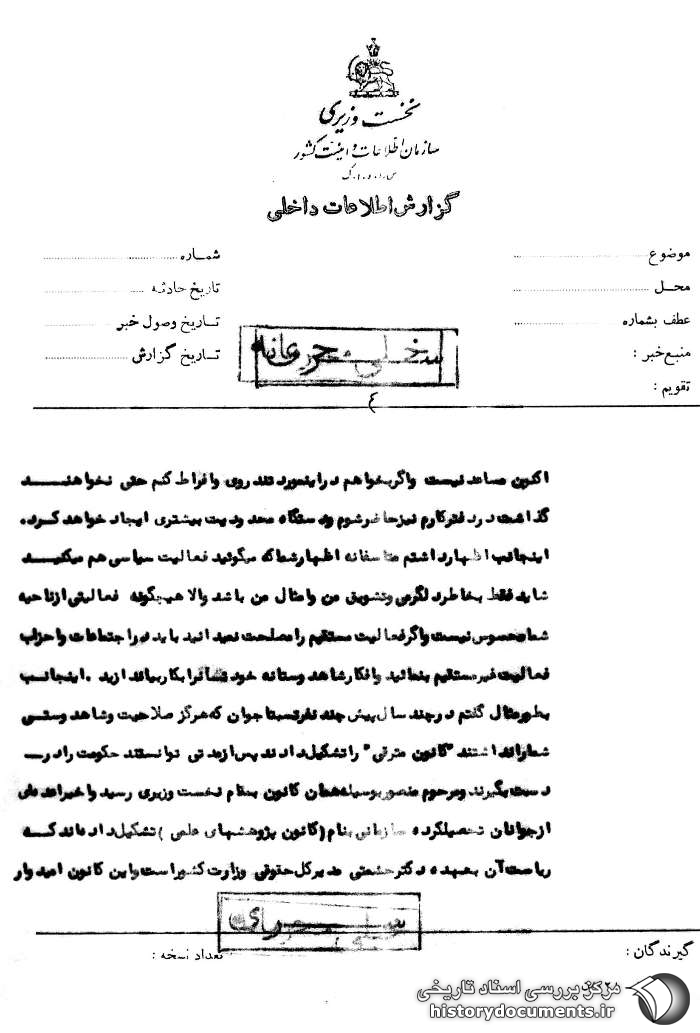 نخست وزیری
سازمان اطلاعات و امنیت کشور
س.ا.و.ا.ک
گزارش اطلاعات داخلی
موضوع
شماره
محل
تاریخ حادثه
عطف بشماره
تاریخ وصول خبر
منبع خبر :
تاریخ گزارش
تقویم :
خیلی محرمانه
٤
اکنون مساعد نیست واگر بخواهم دراینمورد تندروی وافراط کنم حتی نخواهند
گذاشت در دفتر کارم نیز حاضر شوم ودستگاه محدودیت بیشتری ایجاد خواهد کرد.
اینجانب اظهار داشتم متاسفانه اظهار شما که میگوئید فعالیت سیاسی هم میکنید
شاید فقط بخاطر دلگرمی وتشویق من وامثال من باشد والا هیچگونه فعالیتی از ناحیه
شما محسوس نیست واگر فعالیت مستقیم را مصلحت نمیدانید باید در اجتماعات واحزاب
فعالیت غیر مستقیم بنمائید وافکار شاهدوستانه خود را بکار بیاندازید . اینجانب
بطور مثال گفتم در چند سال پیش چند نفر نسبتا جوان که هرگز صلاحیت وشاهدوستی
شما را نداشتند "کانون مترقی" را تشکیل دادند پس از مدتی توانستند حکومت را در
دست بگیرند ومرحوم منصور بوسیله همان کانون بمقام نخست وزیری رسید واخیرا عده‌ای
از جوانان تحصیلکرده سازمانی بنام (کانون پژوهشهای علمی ) تشکیل داده‌اند که
ریاست آن بعهده دکتر حشمتی مدیر کل حقوقی وزارت کشور است واین کانون امیدوار
گیرندگان :
تعداد نسخه :
مرکز بررسی اسناد تاریخی
historydocuments.ir